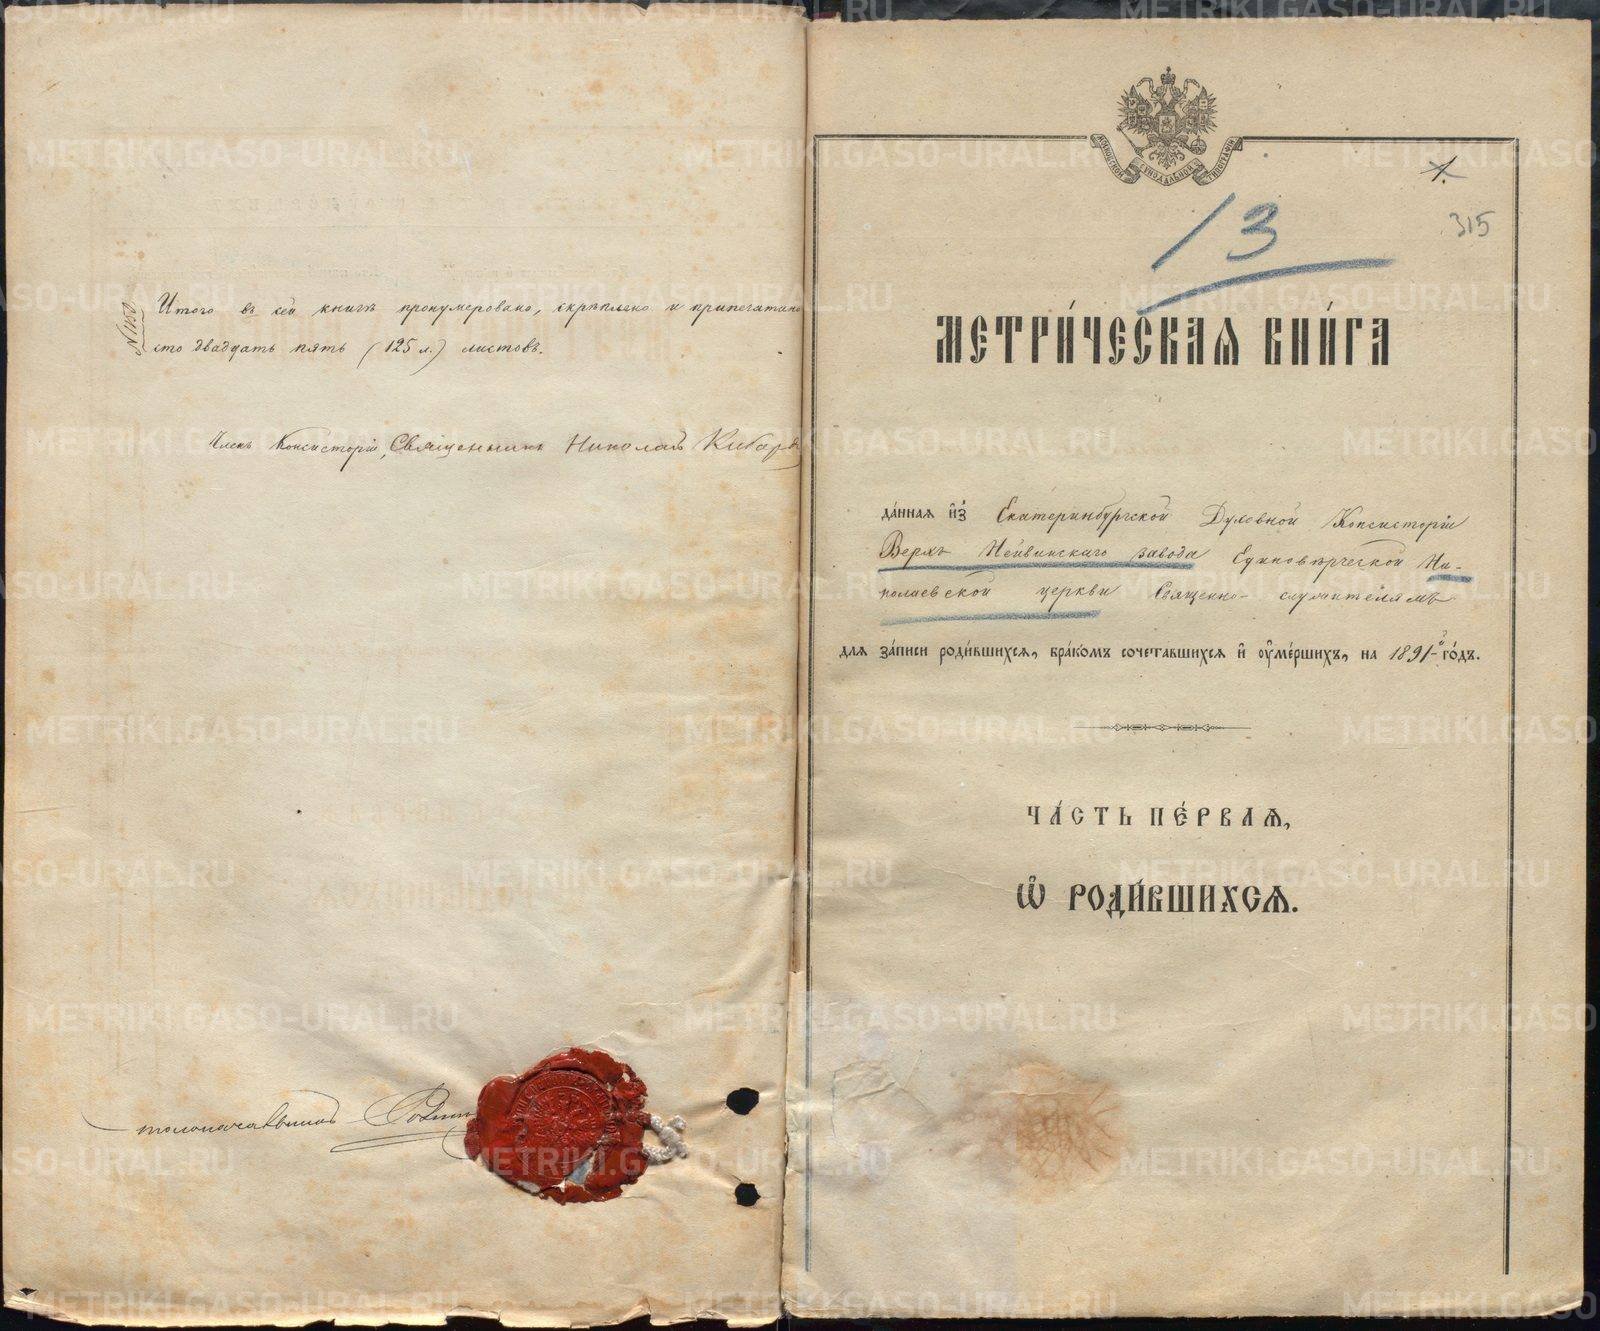 Итого въ сей книгѣ пронумеровано, скрѣплено и припечатано
сто двадцать пять (125 л.) листовъ.
Членъ Консисторіи, Священникъ Николай
Столоначальникъ
МОСКОВСКОЙ СѴНОДАЛЬНОЙ ТИПОГРАФІИ
1.
13
315
МЕТРИ́ЧЕСКАѦ КНИ́ГА
да́ннаѧ и҆з̾ Екатеринбургской Духовной Консисторіи
Верхъ Нейвинскаго завода Единовѣрческой Ни-
колаевской церкви Священно-служителямъ
для за́писи роди́вшихсѧ, бра́комъ сочета́вшихсѧ и҆ оу҆ме́ршихъ, на 1891-й го́дъ.
ЧА́СТЬ ПЕ́РВАѦ,
Ѡ҆ РОДИ́ВШИХСѦ.
METRIKI.GASO-URAL.RU